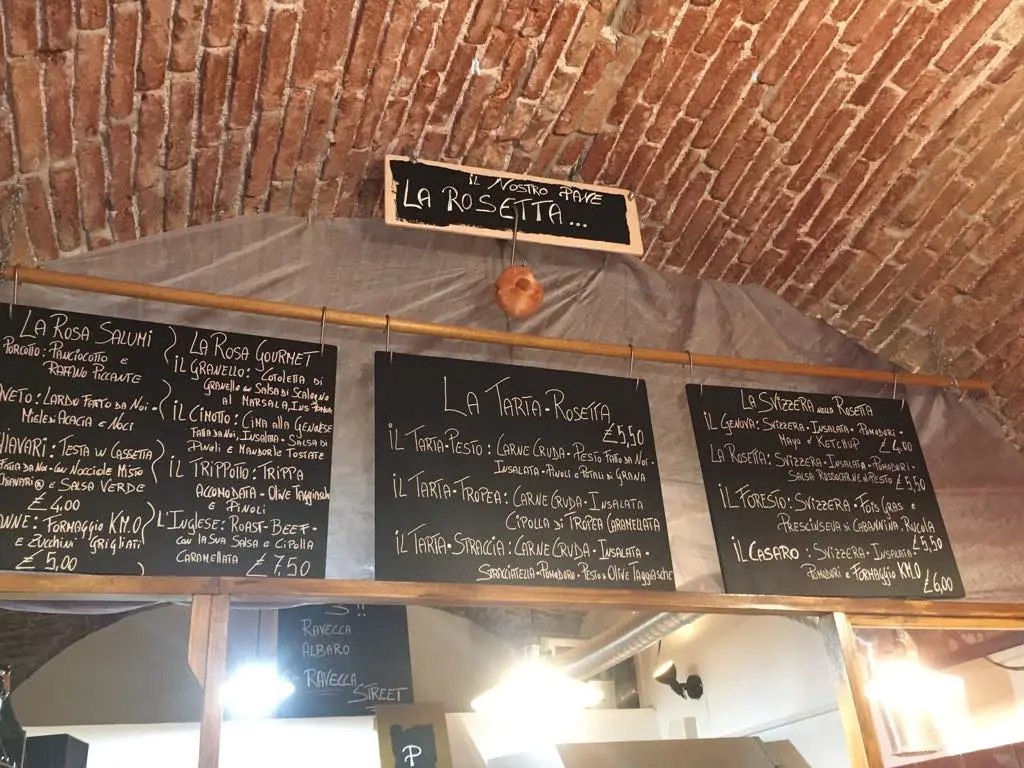 IL NOSTRO PANE
LA ROSETTA...
LA ROSA SALUMI
PORCOTTO: PANCIOCOTTO E
RAFFINO PICCANTE
NETO: LARDO FATTO DA NOI-
MIELE DI ACACIA E NOCI
HIAVARI: TESTA IN CASSETTA
FATTA DA NOI-CON NOCCIOLE MISTO
CHIAVARI® E SALSA VERDE
£ 4,00
NNE: FORMAGGIO KM.0
E ZUCCHINI GRIGLIATI
£ 5,00
LA ROSA GOURMET
IL GRANELLO: COTOLETTA DI
GRANELLO CON SALSA DI SCALOGNO
AL MARSALA,
IL CIMOTTO: CIMA ALLA GENOVESE
FATTA DA NOI, INSALATINA-SALSA DI
PINOLI E MANDORLE TOSTATE
IL TRIPPOTTO: TRIPPA
ACCOMODATA-OLIVE TAGGIASCHE
E PINOLI
L'INGLESE: ROAST-BEEF-
CON LA SUA SALSA E CIPOLLA
CARAMELLATA £ 7,50
LA TARTA-ROSETTA
£ 5,50
IL TARTA-PESTO: CARNE CRUDA-PESTO FATTO DA NOI-
INSALATA-PINOLI E PETALI DI GRANA
IL TARTA-TROPEA: CARNE CRUDA-INSALATA
CIPOLLA DI TROPEA CARAMELLATA
IL TARTA-STRACCIA: CARNE CRUDA-INSALATA-
STRACCIATELLA-POMODORO-PESTO E OLIVE TAGGIASCHE
LA SVIZZERA NELLA ROSETTA
IL GENOVA: SVIZZERA-INSALATA-POMODORI-
MAYO O KETCHUP £ 4,00
LA ROSETTA: SVIZZERA-INSALATA-POMODORI-
SALSA ROSSOCARNE E PESTO £ 5,50
IL FORESTO: SVIZZERA-FOIS GRAS E
PRESCINSEUA DI CABANNINA, RUCOLA
£ 5,50
IL CASARO: SVIZZERA-INSALATA
POMODORI E FORMAGGIO KM.0
£ 6,00
S!!
RAVECCA
ALBARO
RAVECCA
STREET
P